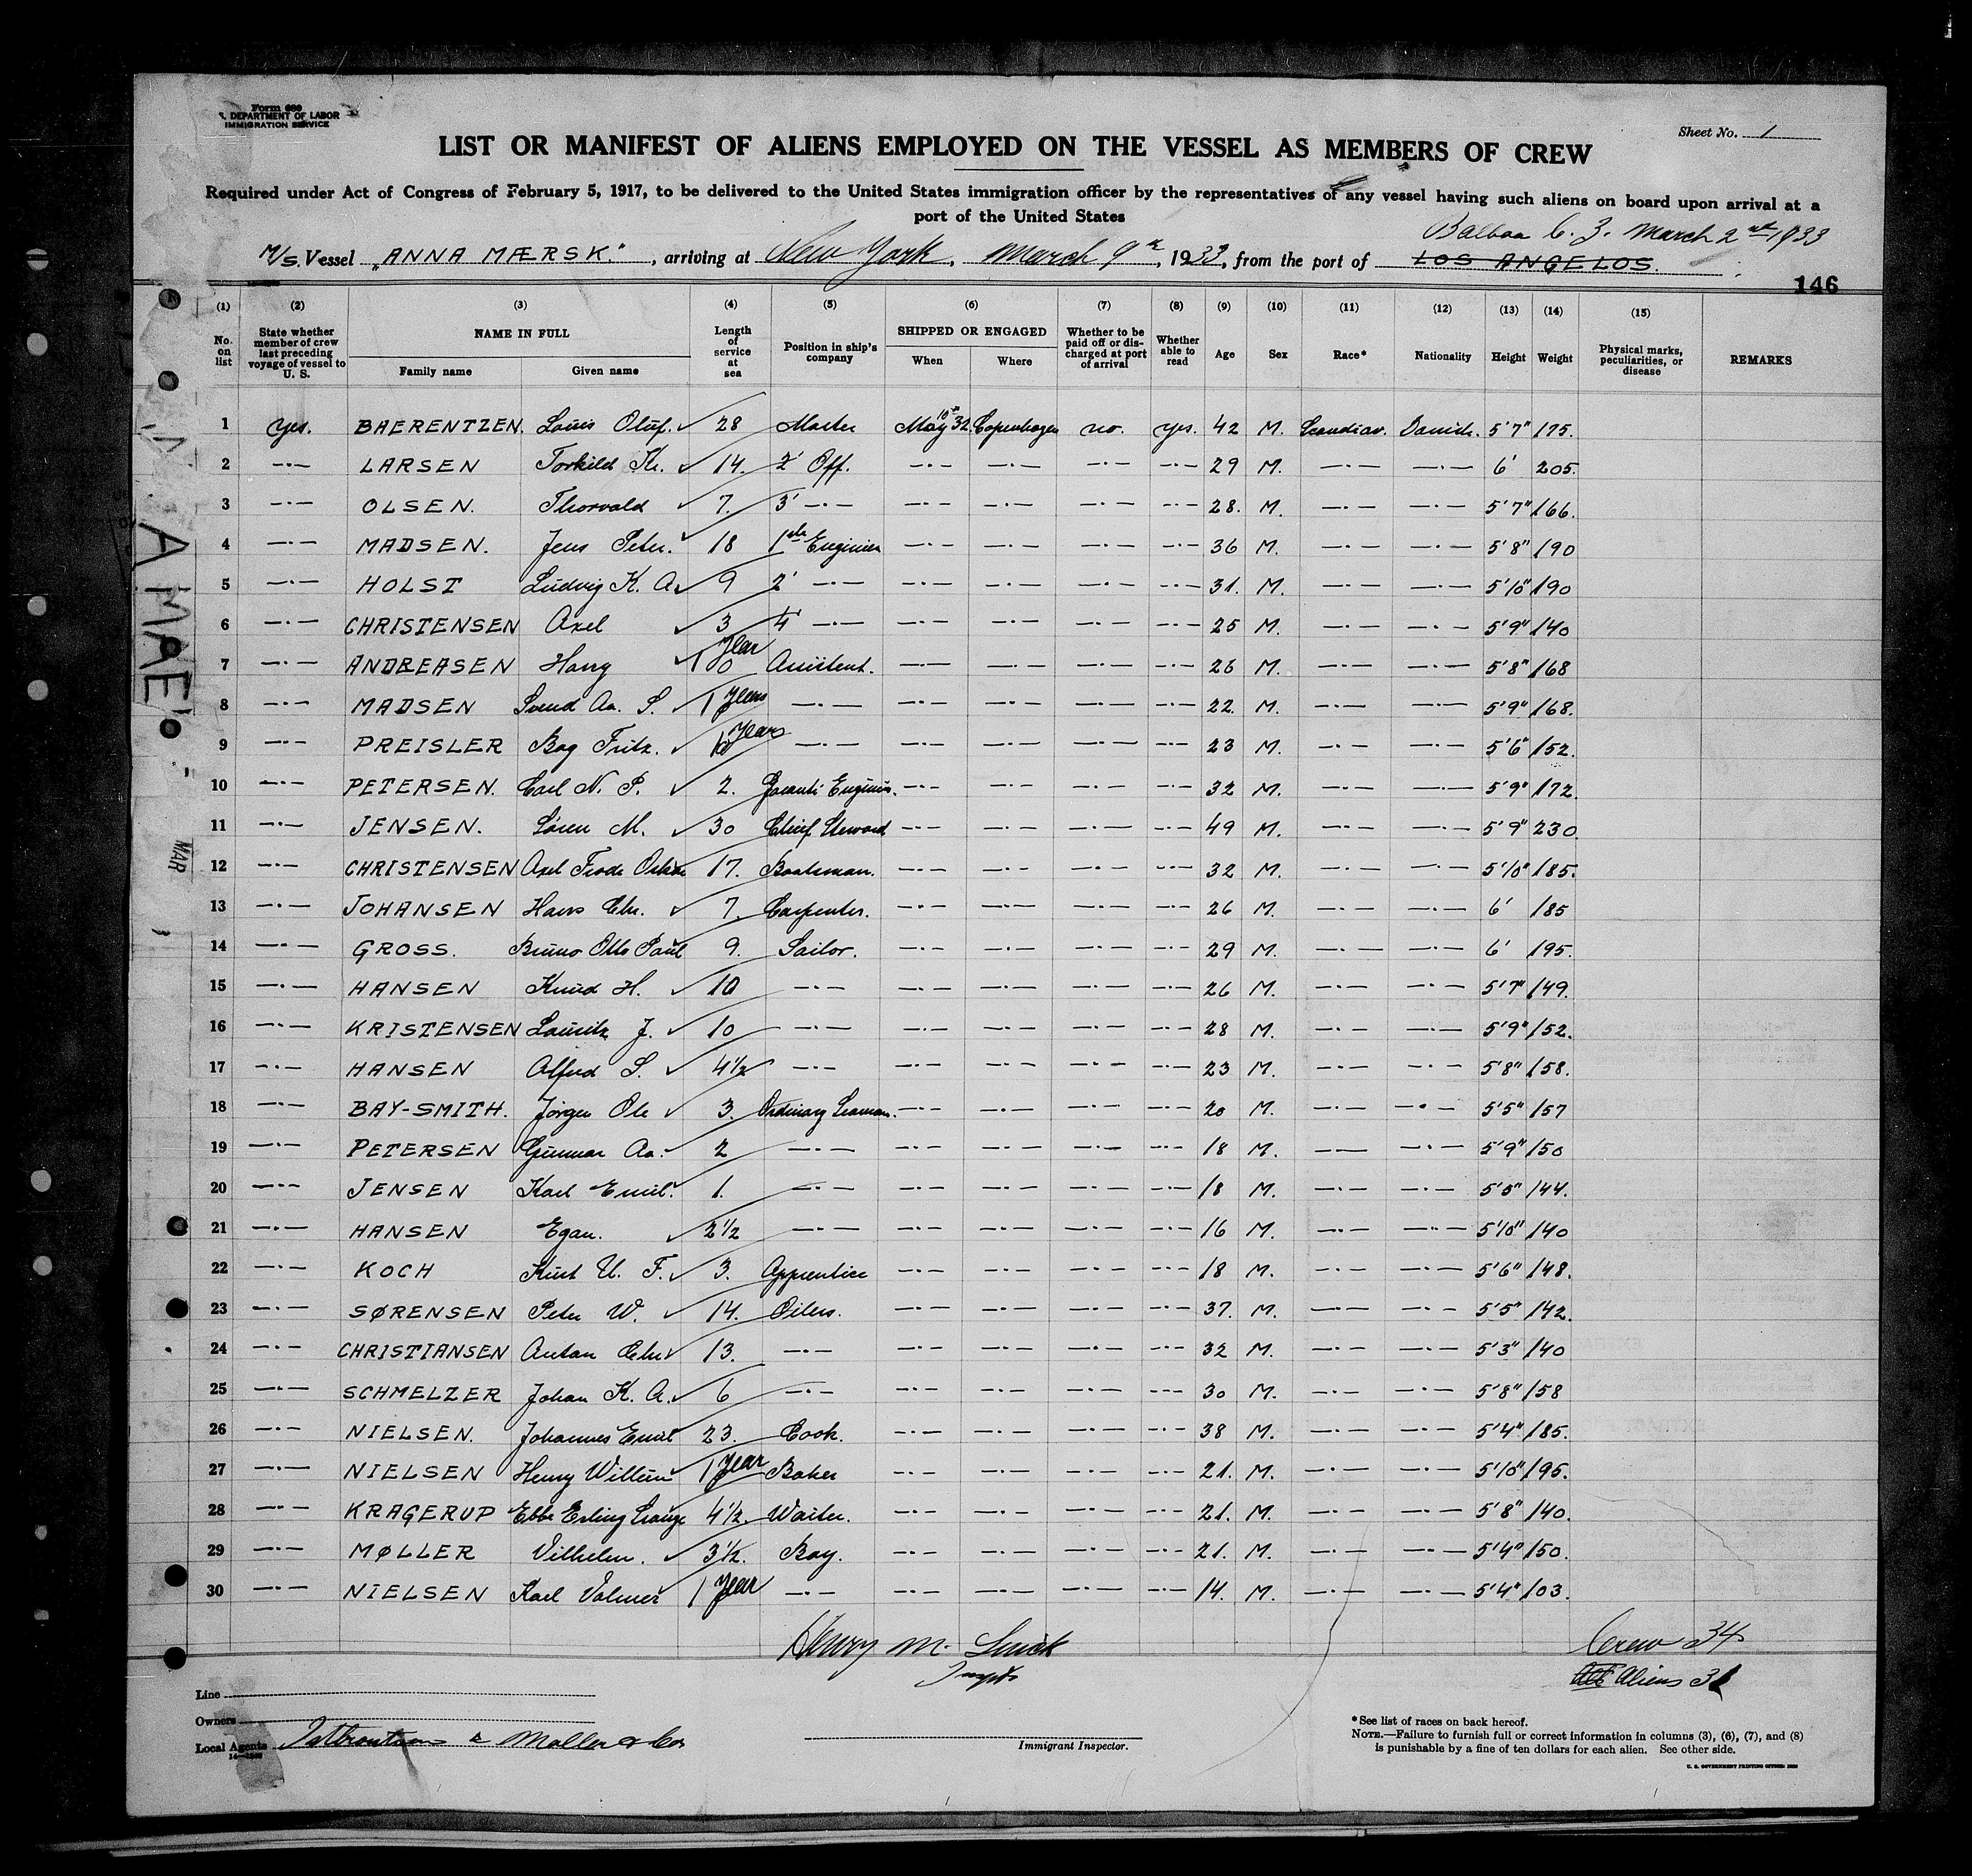 Form 680
S. DEPARTMENT OF LABOR
IMMIGRATION SERVICE
Sheet No. 1
LIST OR MANIFEST OF ALIENS EMPLOYED ON THE VESSEL AS MEMBERS OF CREW
Required under Act of Congress of February 5, 1917, to be delivered to the United States immigration officer by the representatives of any vessel having such aliens on board upon arrival at a
port of the United States
Balboa C. Z. March 2nd 1933
M/S. Vessel „ANNA MÆRSK." , arriving at New York, March 9th, 1933, from the port of LOS ANGELOS.
146
(1) (2) (3) (4) (5) (6) (7) (8) (9) (10) (11) (12) (13) (14) (15)
No. on list | State whether member of crew last preceding voyage of vessel to U. S. | NAME IN FULL Family name Given name | Length of service at sea | Position in ship's company | SHIPPED OR ENGAGED When Where | Whether to be paid off or discharged at port of arrival | Whether able to read | Age | Sex | Race* | Nationality | Height | Weight | Physical marks, peculiarities, or disease | REMARKS
1 yes. BAERENTZEN. Louis Oluf. ✓ 28 Master May 10th 32. Copenhagen no. yes. 42 M. Scandinav. Danish. 5'7" 175.
2 —·— LARSEN Torkild Kr. ✓ 14. 2' Off. —·— —·— —·— —·— 29 M. —·— —·— 6' 205.
3 —·— OLSEN. Thorvald ✓ 7. 3' —·— —·— —·— —·— —·— 28. M. —·— —·— 5'7" 166.
4 —·— MADSEN. Jens Peter. ✓ 18 1ste Enginier —·— —·— —·— —·— 36 M. —·— —·— 5'8" 190
5 —·— HOLST Ludvig K. A. ✓ 9 2' —·— —·— —·— —·— —·— 31. M. —·— —·— 5'10" 190
6 —·— CHRISTENSEN Axel ✓ 3 4' —·— —·— —·— —·— —·— 25 M. —·— —·— 5'9" 140
7 —·— ANDREASEN Harry ✓ Year Assistent. —·— —·— —·— —·— 26 M. —·— —·— 5'8" 168
8 —·— MADSEN Svend Aa. S. ✓ 1 Years —·— —·— —·— —·— —·— 22. M. —·— —·— 5'9" 168.
9 —·— PREISLER Fritz. ✓ Years —·— —·— —·— —·— —·— 23 M. —·— —·— 5'6" 152.
10 —·— PETERSEN. Carl N. P. ✓ 2. Garanti Enginier. —·— —·— —·— —·— 32 M. —·— —·— 5'9" 172.
11 —·— JENSEN. Sören M. ✓ 30 Chief Steward —·— —·— —·— —·— 49 M. —·— —·— 5'9" 230.
12 —·— CHRISTENSEN Axel Frode 17. Boatsman. —·— —·— —·— —·— 32 M. —·— —·— 5'10" 185.
13 —·— JOHANSEN Hans Chr. ✓ 7. Carpenter. —·— —·— —·— —·— 26 M. —·— —·— 6' 185
14 —·— GROSS. Bruno Otto Paul 9. Sailor. —·— —·— —·— —·— 29 M. —·— —·— 6' 195.
15 —·— HANSEN Knud H. ✓ 10 —·— —·— —·— —·— —·— 26 M. —·— —·— 5'7" 149.
16 —·— KRISTENSEN Lauritz J. ✓ 10 —·— —·— —·— —·— —·— 28 M. —·— —·— 5'9" 152.
17 —·— HANSEN Alfred S. ✓ 4½ —·— —·— —·— —·— —·— 23 M. —·— —·— 5'8" 158.
18 —·— BAY-SMITH. Jörgen Ole ✓ 3. Ordinary Seaman. —·— —·— —·— —·— 20 M. —·— —·— 5'5" 157
19 —·— PETERSEN Gunnar Aa. ✓ 2 —·— —·— —·— —·— —·— 18 M. —·— —·— 5'9" 150
20 —·— JENSEN Karl Emil. ✓ 1. —·— —·— —·— —·— —·— 18 M. —·— —·— 144.
21 —·— HANSEN Egon. ✓ 2½ —·— —·— —·— —·— —·— 16 M. —·— —·— 5'10" 140
22 —·— KOCH Kurt U. F. ✓ 3. Apprentice —·— —·— —·— —·— 18 M. —·— —·— 5'6" 148.
23 —·— SØRENSEN Peter W. ✓ 14. Oilers. —·— —·— —·— —·— 37. M. —·— —·— 5'5" 142.
24 —·— CHRISTIANSEN Anton Chr ✓ 13. —·— —·— —·— —·— —·— 32 M. —·— —·— 5'3" 140
25 —·— SCHMELZER Johan K. A. ✓ 6 —·— —·— —·— —·— —·— 30 M. —·— —·— 5'8" 158
26 —·— NIELSEN. Johannes Emil 23. Cook. —·— —·— —·— —·— 38 M. —·— —·— 5'4" 185.
27 —·— NIELSEN Henry Willem 1 Year Baker —·— —·— —·— —·— 21. M. —·— —·— 5'10" 195.
28 —·— KRAGERUP Ebbe Erling Lange 4½. Waiter. —·— —·— —·— —·— 21. M. —·— —·— 5'8" 140.
29 —·— MØLLER Vilhelm. ✓ 3½. Boy. —·— —·— —·— —·— 21. M. —·— —·— 5'4" 150.
30 —·— NIELSEN Karl Volmer 1 Year —·— —·— —·— —·— —·— 14. M. —·— —·— 5'4" 103.
A MAE
MAR
Henry M. Smick
Inspt
Crew 34
Aliens 31
Line
Owners
Local Agents Moller & Co
Immigrant Inspector.
*See list of races on back hereof.
NOTE.—Failure to furnish full or correct information in columns (3), (6), (7), and (8)
is punishable by a fine of ten dollars for each alien. See other side.